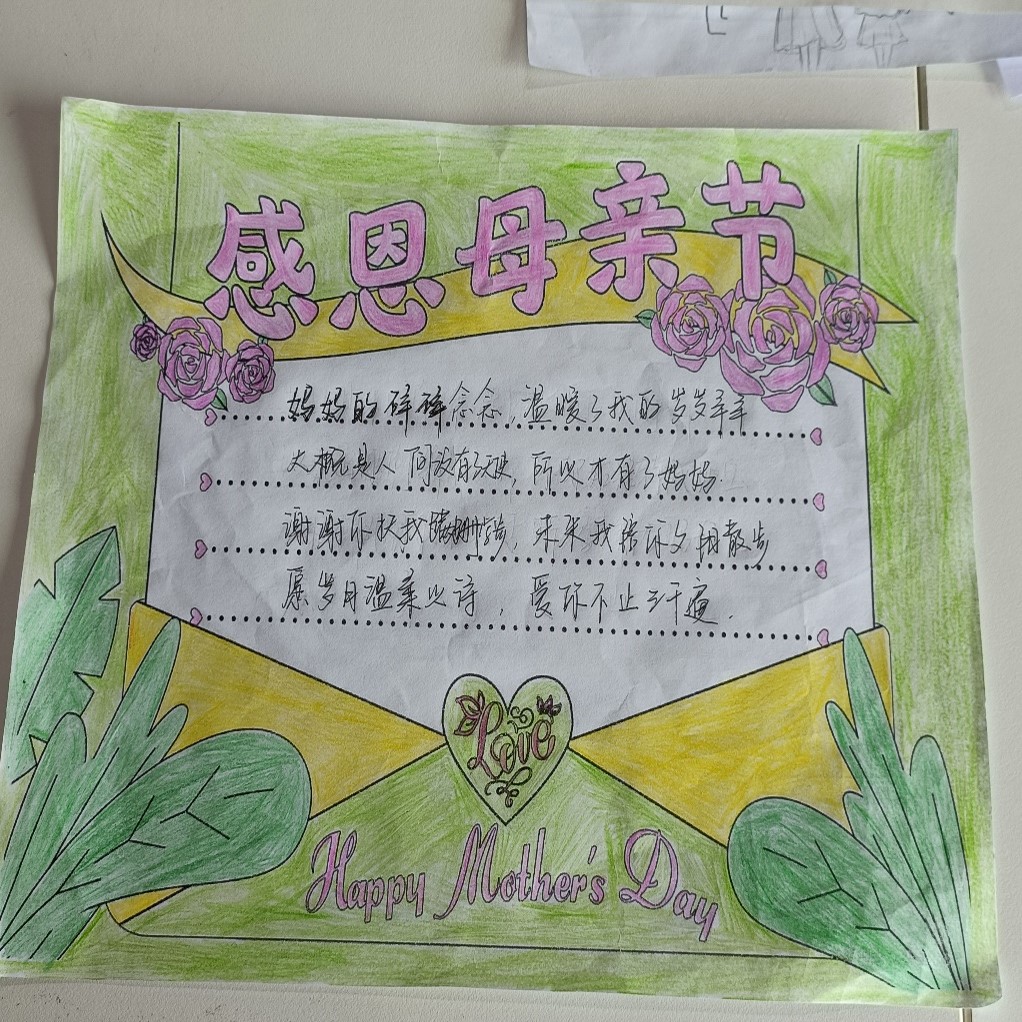 感恩母亲节
妈妈的碎碎念念,温暖了我的岁岁年年
大概是人间没有了天使,所以才有了妈妈.
谢谢你扶我蹒跚学步,未来我陪你夕阳散步
愿岁月温柔以诗,爱你不止三千遍.
Love
Happy Mother's Day